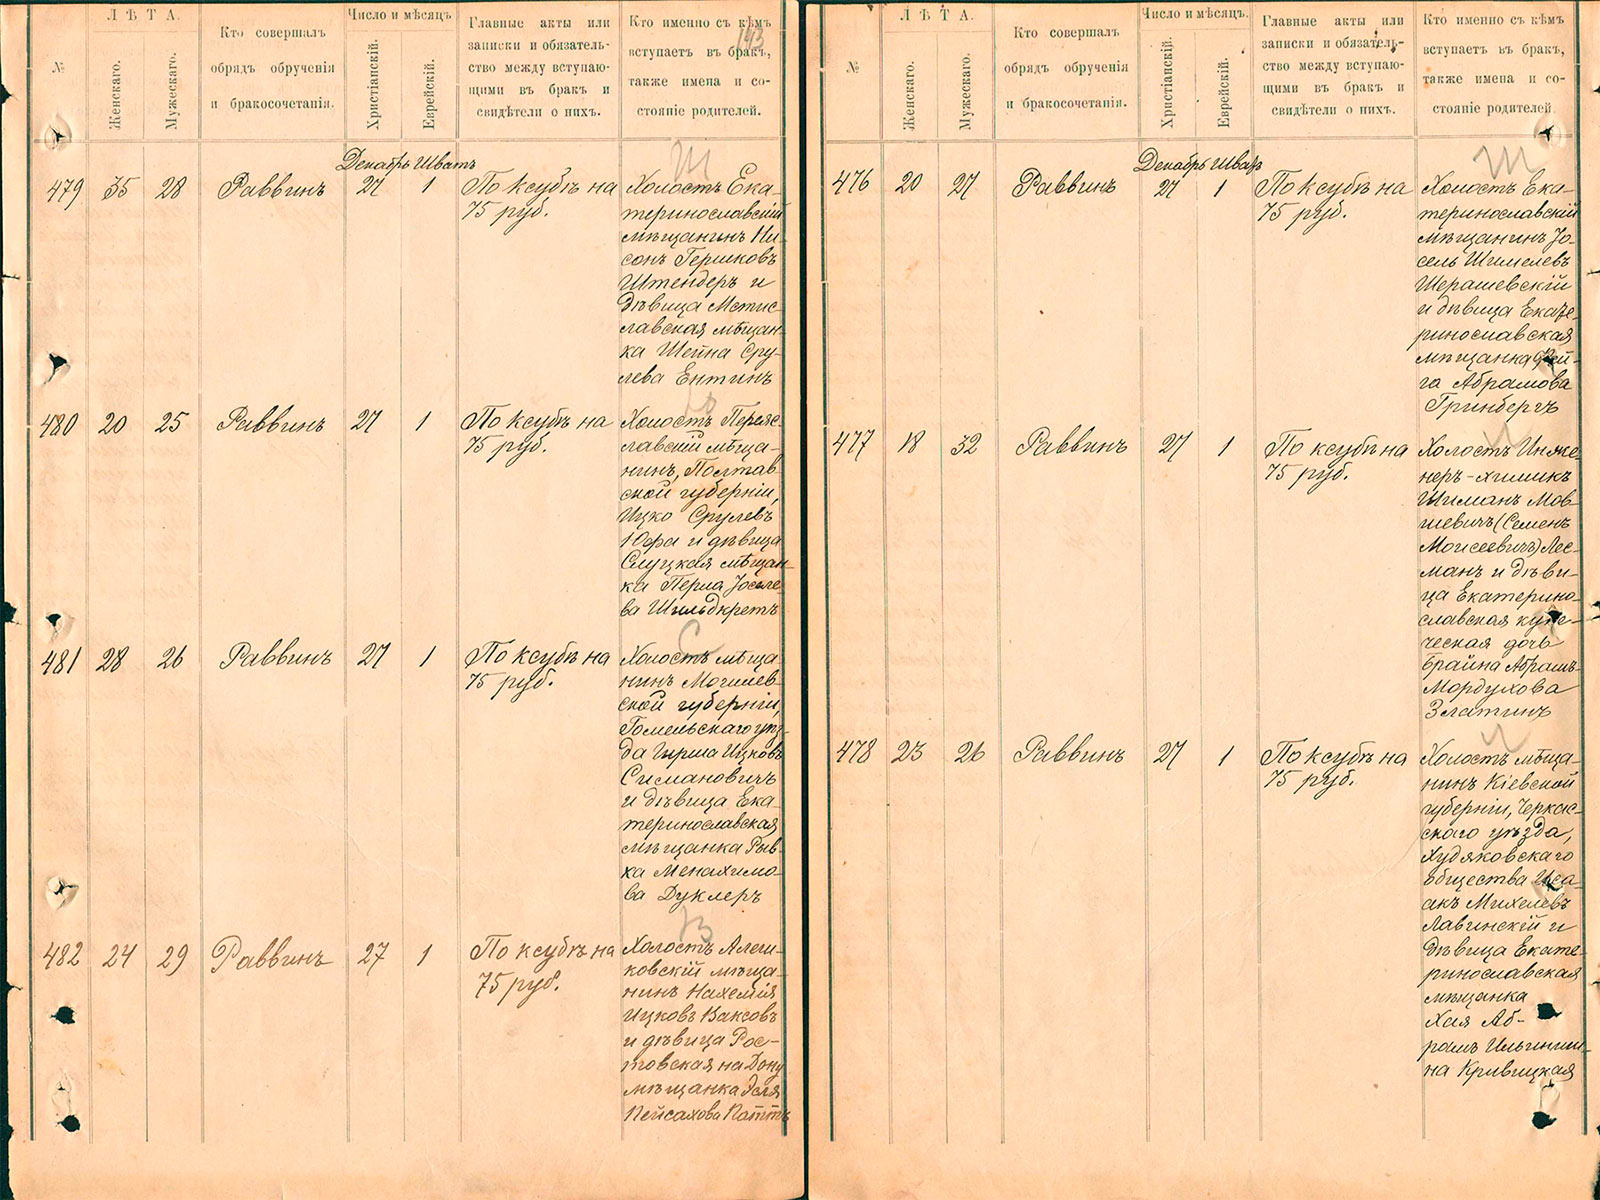 №
ЛѢТА.
Женскаго.
Мужескаго.
Кто совершалъ
обрядъ обрученія
и бракосочетанія.
Число и мѣсяцъ
Христіанскій.
Еврейскій.
Главные акты или
записки и обязатель-
ство между вступаю-
щими въ бракъ и
свидѣтели о нихъ.
Кто именно съ кѣмъ
вступаетъ въ бракъ,
также имена и со-
стояніе родителей.
143
Декабрь Шватъ
Ш
479 35 28 Раввинъ 27 1
По ксубѣ на
75 руб.
Холостъ Ека-
теринославскій
мѣщанинъ Ни-
сонъ Гершковъ
Штендеръ и
дѣвица Мстис-
лавская мѣщан-
ка Шейна Сру-
лева Ентинъ
Ю
480 20 25 Раввинъ 27 1
По ксубѣ на
75 руб.
Холостъ Переяс-
лавскій мѣща-
нинъ, Полтав
ской губерніи,
Ицко Срулевъ
Юфа и дѣвица
Слуцкая мѣщан-
ка Перла Іоселе-
ва Шильдкретъ
С
481 28 26 Раввинъ 27 1
По ксубѣ на
75 руб.
Холостъ мѣща-
нинъ Могилев-
ской губерніи,
Гомельскаго уѣз-
да Гирша Ицковъ
Симановичъ
и дѣвица Ека-
теринославская
мѣщанка Рыв-
ка Менахимо-
ва Дуклеръ
В
482 24 29 Раввинъ 27 1
По ксубѣ на
75 руб.
Холостъ Алеш-
ковскій мѣща-
нинъ Нахемія
Ицковъ Ваксовъ
и дѣвица Рос-
товская на Дону
мѣщанка Эстя
Пейсахова Коттъ
№
ЛѢТА.
Женскаго.
Мужескаго.
Кто совершалъ
обрядъ обрученія
и бракосочетанія.
Число и мѣсяцъ.
Христіанскій.
Еврейскій.
Главные акты или
записки и обязатель-
ство между вступаю-
щими въ бракъ и
свидѣтели о нихъ.
Кто именно съ кѣмъ
вступаетъ въ бракъ,
также имена и со-
стояніе родителей.
Декабрь Шватъ
Ш
476 20 27 Раввинъ 27 1
По ксубѣ на
75 руб.
Холостъ Ека-
теринославскій
мѣщанинъ Іо-
сель Шимелевъ
Шерашевскій
и дѣвица Екате-
ринославская
мѣщанка Фей-
га Абрамова
Гринбергъ
477 18 32 Раввинъ 27 1
По ксубѣ на
75 руб.
Холостъ Инже-
неръ-химикъ
Шиманъ Мов-
шевичъ (Семенъ
Моисеевичъ) Лес-
манъ и дѣви-
ца Екатерино-
славская купе-
ческая дочь
Брайна Абрамъ-
Мордухова
Златинъ
Л
478 23 26 Раввинъ 27 1
По ксубѣ на
75 руб.
Холостъ мѣща-
нинъ Кіевской
губерніи, Черкас-
скаго уѣзда,
Худяковскаго
общества Иса-
акъ Михелевъ
Лавинскій и
дѣвица Екате-
ринославская
мѣщанка
Хая Аб-
рамъ Ильинич-
на Кривицкая